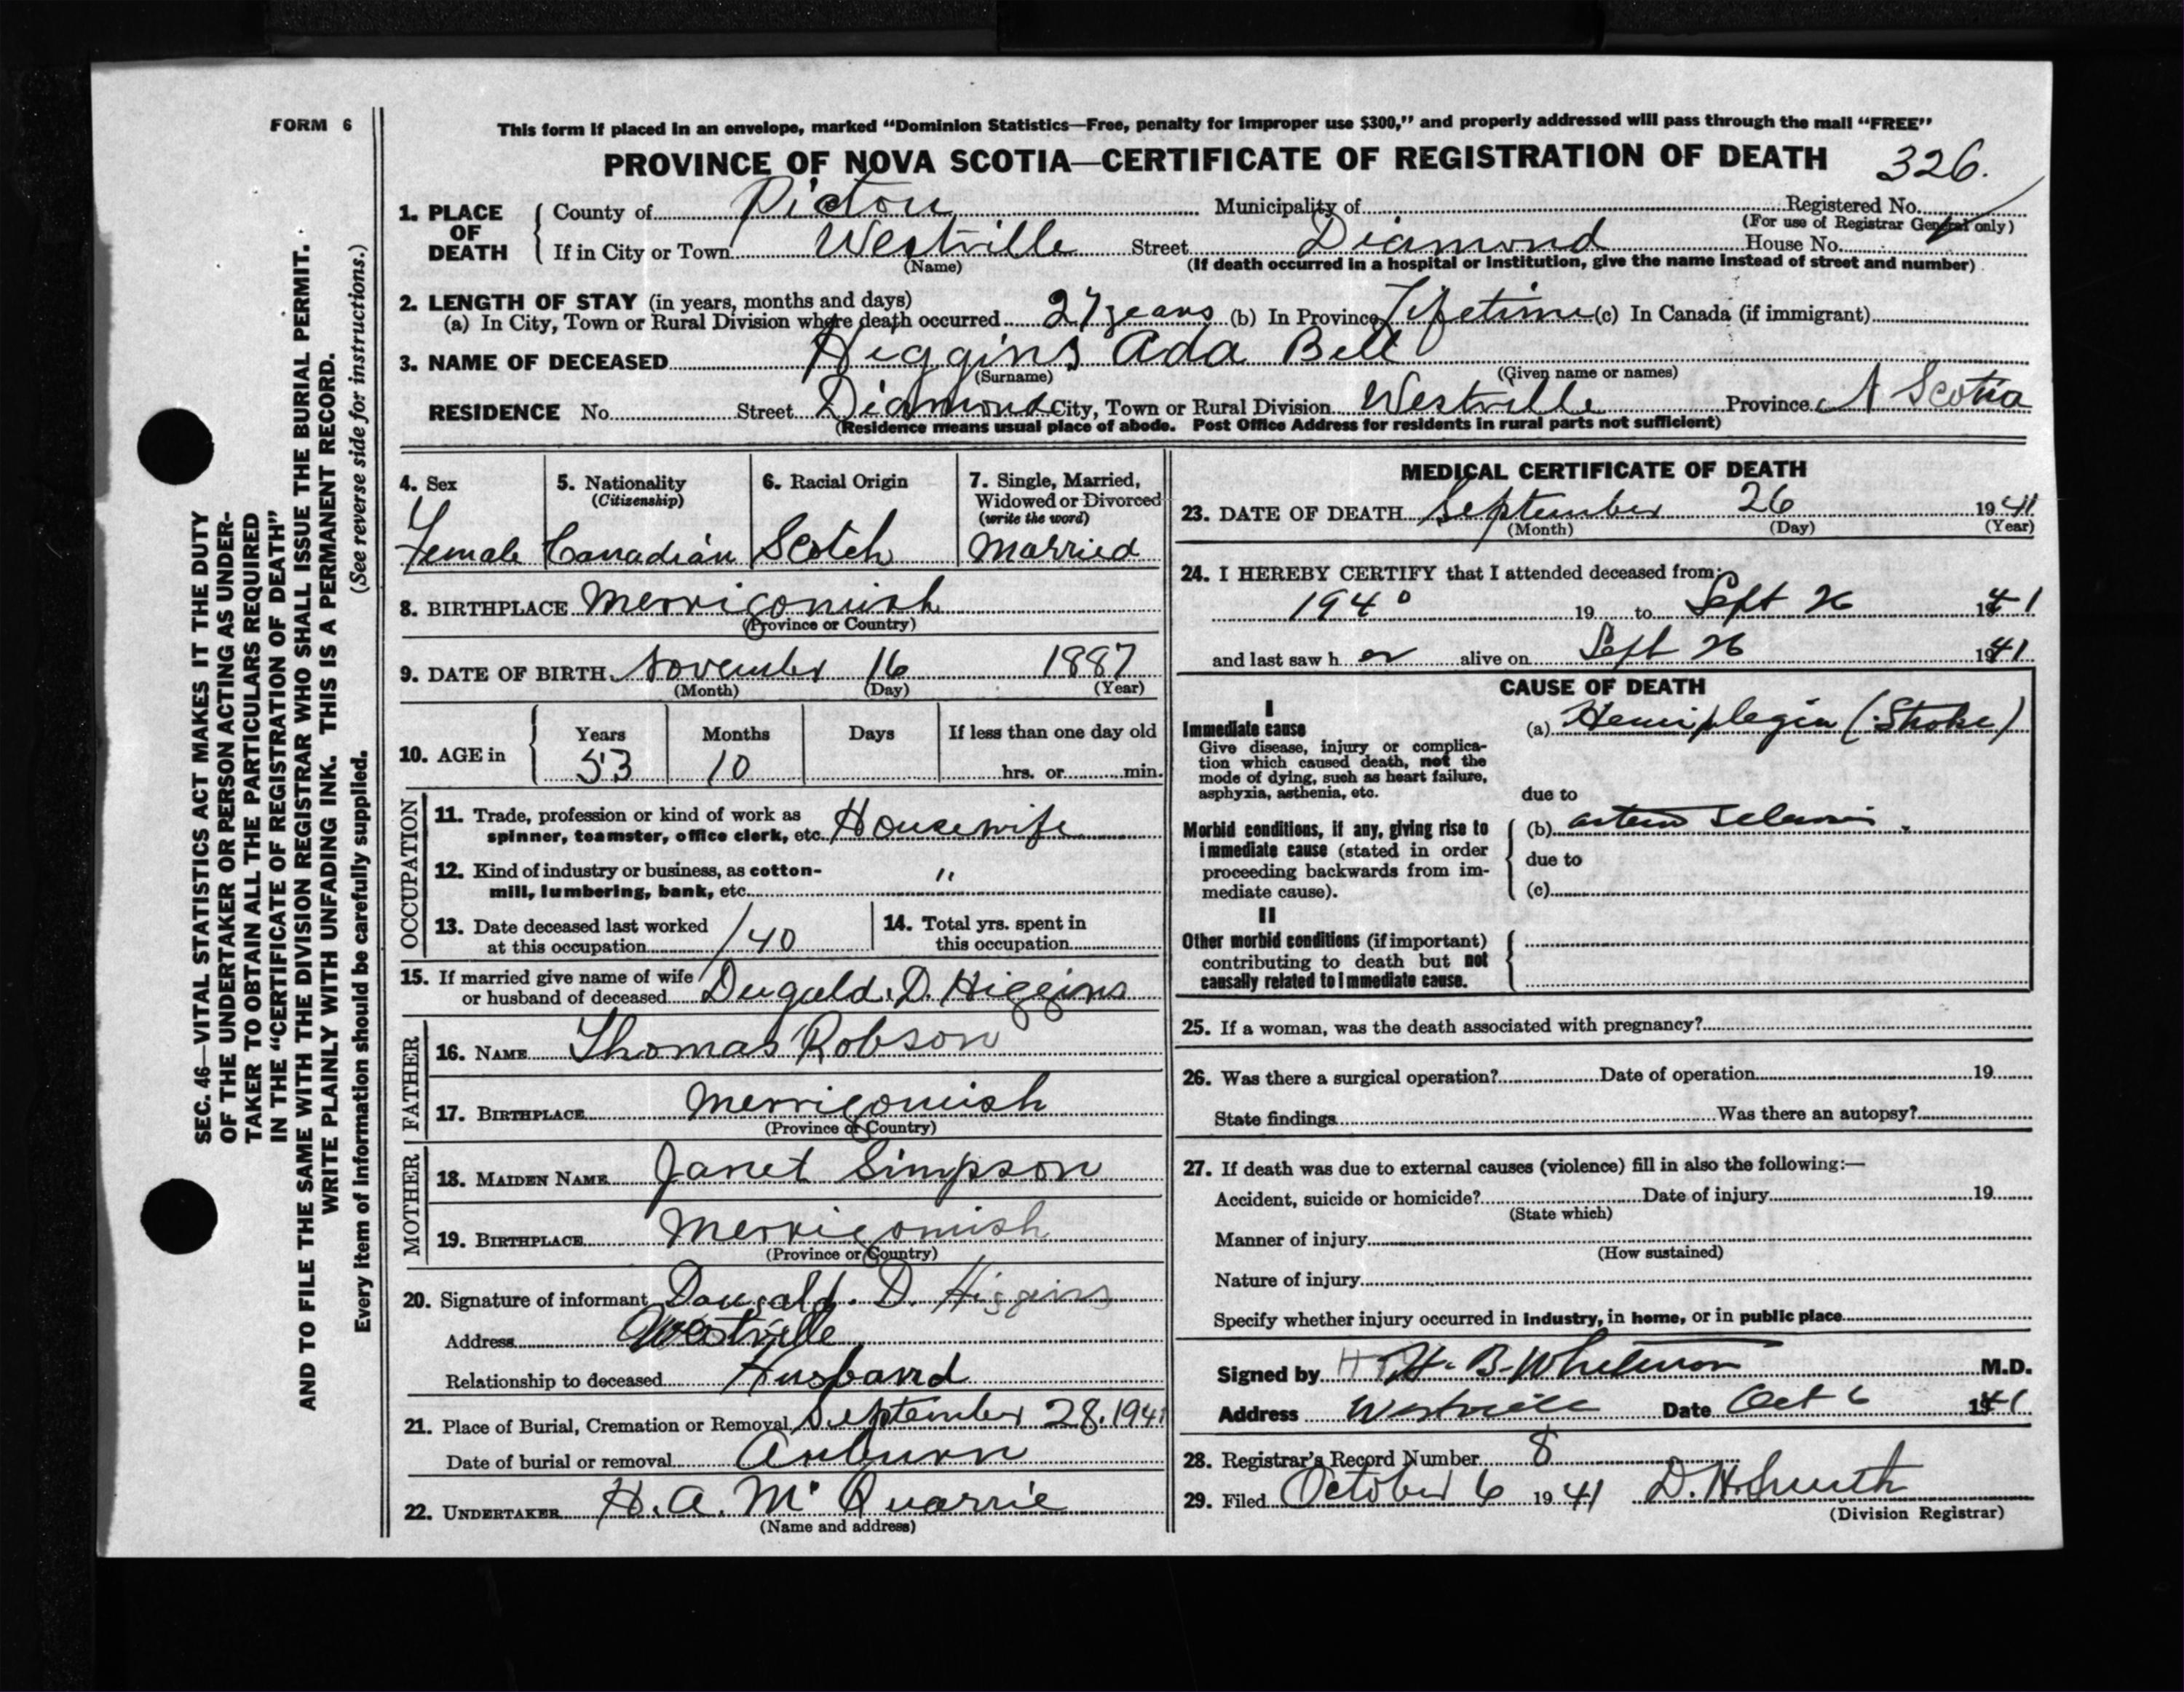 FORM 6
This form if placed in an envelope, marked “Dominion Statistics—Free, penalty for improper use $300,” and properly addressed will pass through the mail “FREE”
PROVINCE OF NOVA SCOTIA—CERTIFICATE OF REGISTRATION OF DEATH 326.
1. PLACE OF DEATH County of Pictou Municipality of Registered No.
(For use of Registrar General only)
If in City or Town Westville Street Diamond House No.
(Name) (If death occurred in a hospital or institution, give the name instead of street and number)
2. LENGTH OF STAY (in years, months and days)
(a) In City, Town or Rural Division where death occurred 27 years (b) In Province Lifetime (c) In Canada (if immigrant)
3. NAME OF DECEASED Higgins Ada Bell
(Surname) (Given name or names)
RESIDENCE No. Street Diamond City, Town or Rural Division Westville Province N Scotia
(Residence means usual place of abode. Post Office Address for residents in rural parts not sufficient)
4. Sex Female
5. Nationality (Citizenship) Canadian
6. Racial Origin Scotch
7. Single, Married, Widowed or Divorced (write the word) Married
8. BIRTHPLACE Merrigomish
(Province or Country)
9. DATE OF BIRTH November 16 1887
(Month) (Day) (Year)
10. AGE in Years Months Days If less than one day old
53 10 hrs. or min.
OCCUPATION
11. Trade, profession or kind of work as
spinner, teamster, office clerk, etc. Housewife
12. Kind of industry or business, as cotton-
mill, lumbering, bank, etc. "
13. Date deceased last worked
at this occupation /40
14. Total yrs. spent in
this occupation
15. If married give name of wife
or husband of deceased Dugald. D. Higgins
FATHER
16. NAME Thomas Robson
17. BIRTHPLACE Merrigomish
(Province or Country)
MOTHER
18. MAIDEN NAME Janet Simpson
19. BIRTHPLACE Merrigomish
(Province or Country)
20. Signature of informant Dougald. D. Higgins
Address Westville
Relationship to deceased Husband
21. Place of Burial, Cremation or Removal September 28. 1941
Date of burial or removal Auburn
22. UNDERTAKER H. A. Mc Quarrie
(Name and address)
MEDICAL CERTIFICATE OF DEATH
23. DATE OF DEATH September 26 1941
(Month) (Day) (Year)
24. I HEREBY CERTIFY that I attended deceased from:
1940 19 to Sept 26 1941
and last saw h er alive on Sept 26 1941
CAUSE OF DEATH
I
Immediate cause
Give disease, injury or complica-
tion which caused death, not the
mode of dying, such as heart failure,
asphyxia, asthenia, etc.
(a) Hemiplegia (Stroke)
due to
Morbid conditions, if any, giving rise to
immediate cause (stated in order
proceeding backwards from im-
mediate cause).
(b)
due to
(c)
II
Other morbid conditions (if important)
contributing to death but not
causally related to immediate cause.
25. If a woman, was the death associated with pregnancy?
26. Was there a surgical operation? Date of operation 19
State findings Was there an autopsy?
27. If death was due to external causes (violence) fill in also the following:—
Accident, suicide or homicide? Date of injury 19
(State which)
Manner of injury
(How sustained)
Nature of injury
Specify whether injury occurred in industry, in home, or in public place
Signed by H. B. Whitman M.D.
Address Westville Date Oct 6 1941
28. Registrar's Record Number 8
29. Filed October 6 19 41 D. H. Smith
(Division Registrar)
SEC. 46—VITAL STATISTICS ACT MAKES IT THE DUTY
OF THE UNDERTAKER OR PERSON ACTING AS UNDER-
TAKER TO OBTAIN ALL THE PARTICULARS REQUIRED
IN THE “CERTIFICATE OF REGISTRATION OF DEATH”
AND TO FILE THE SAME WITH THE DIVISION REGISTRAR WHO SHALL ISSUE THE BURIAL PERMIT.
WRITE PLAINLY WITH UNFADING INK. THIS IS A PERMANENT RECORD.
Every item of information should be carefully supplied. (See reverse side for instructions.)